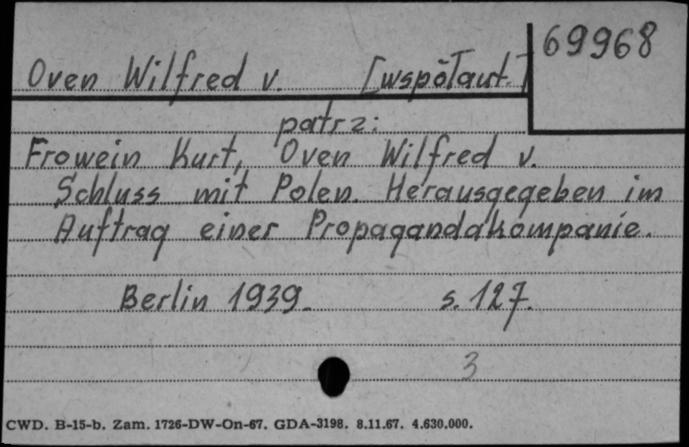 69968
Oven Wilfred v. [współaut.]
patrz:
Frowein Kurt, Oven Wilfred v.
Schluss mit Polen. Herausgegeben im
Auftrag einer Propagandakompanie.
Berlin 1939. s. 127.
3
CWD. B-15-b. Zam. 1726-DW-On-67. GDA-3198. 8.11.67. 4.630.000.